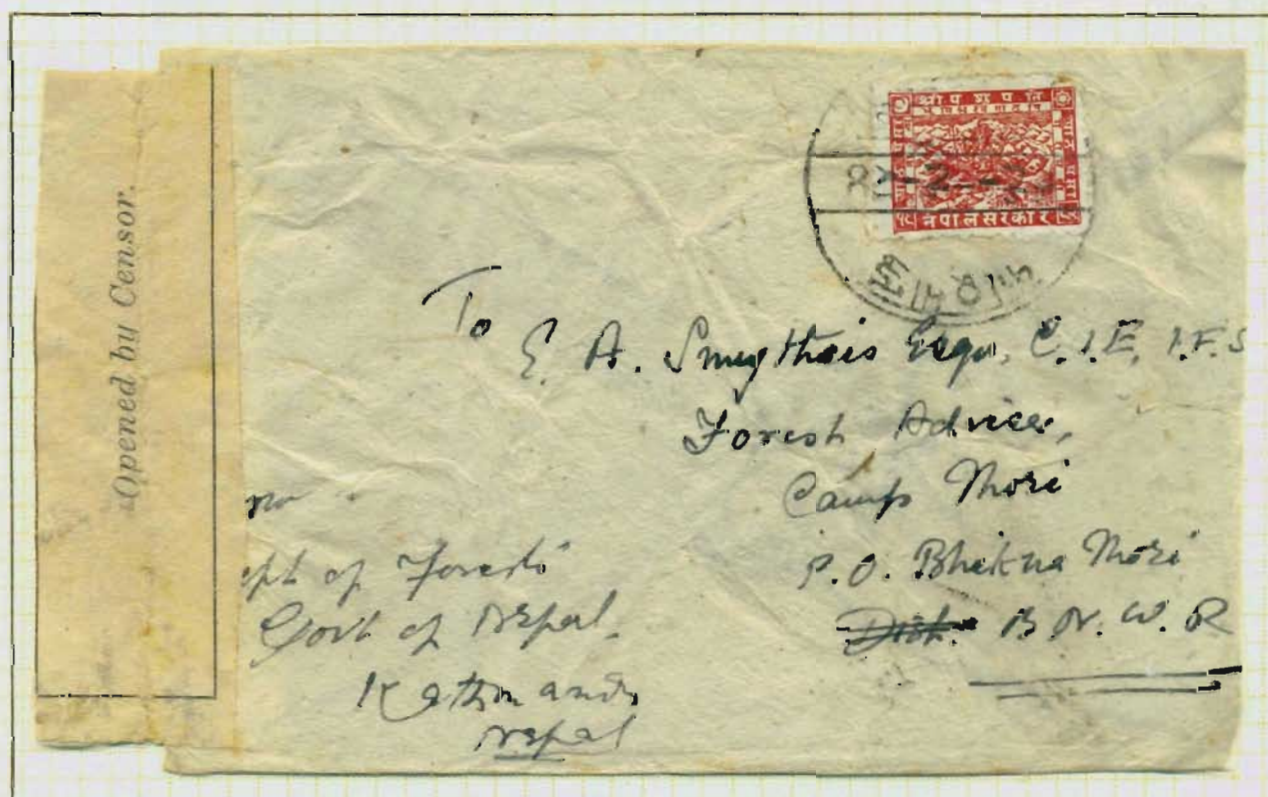 Opened by Censor.
श्री प शु प ति
नेपाल सरकार
To E. A. Smythies Esqr, C.I.E, I.F.S
Forest Adviser,
Camp Mori
P.O. Bhikna Mori
Dist. B N. W. R
ept of Forests
Govt of Nepal.
Kathmandu
Nepal